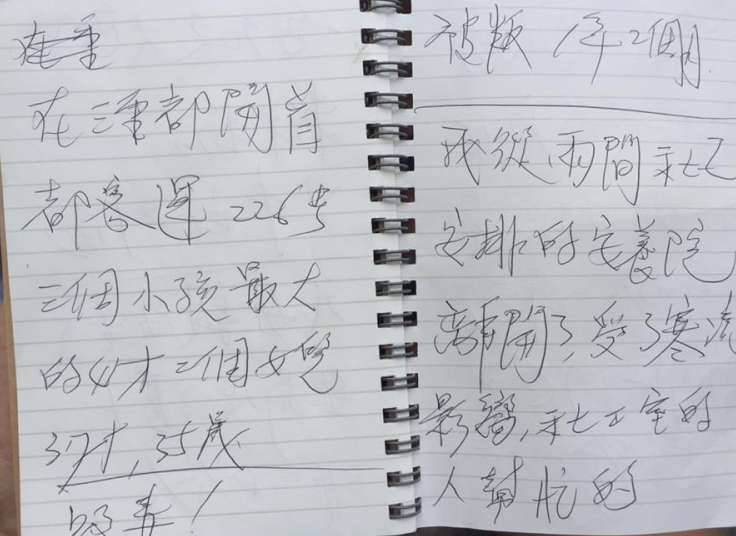 在三重都開首
都客運 226号
三個小孩最大
的41才 二個女兒
37才,35歲
被叛 1年2個月
我從兩間社工
安排的安養院
離開了,受了寒流
影響,社工室的
人幫忙的